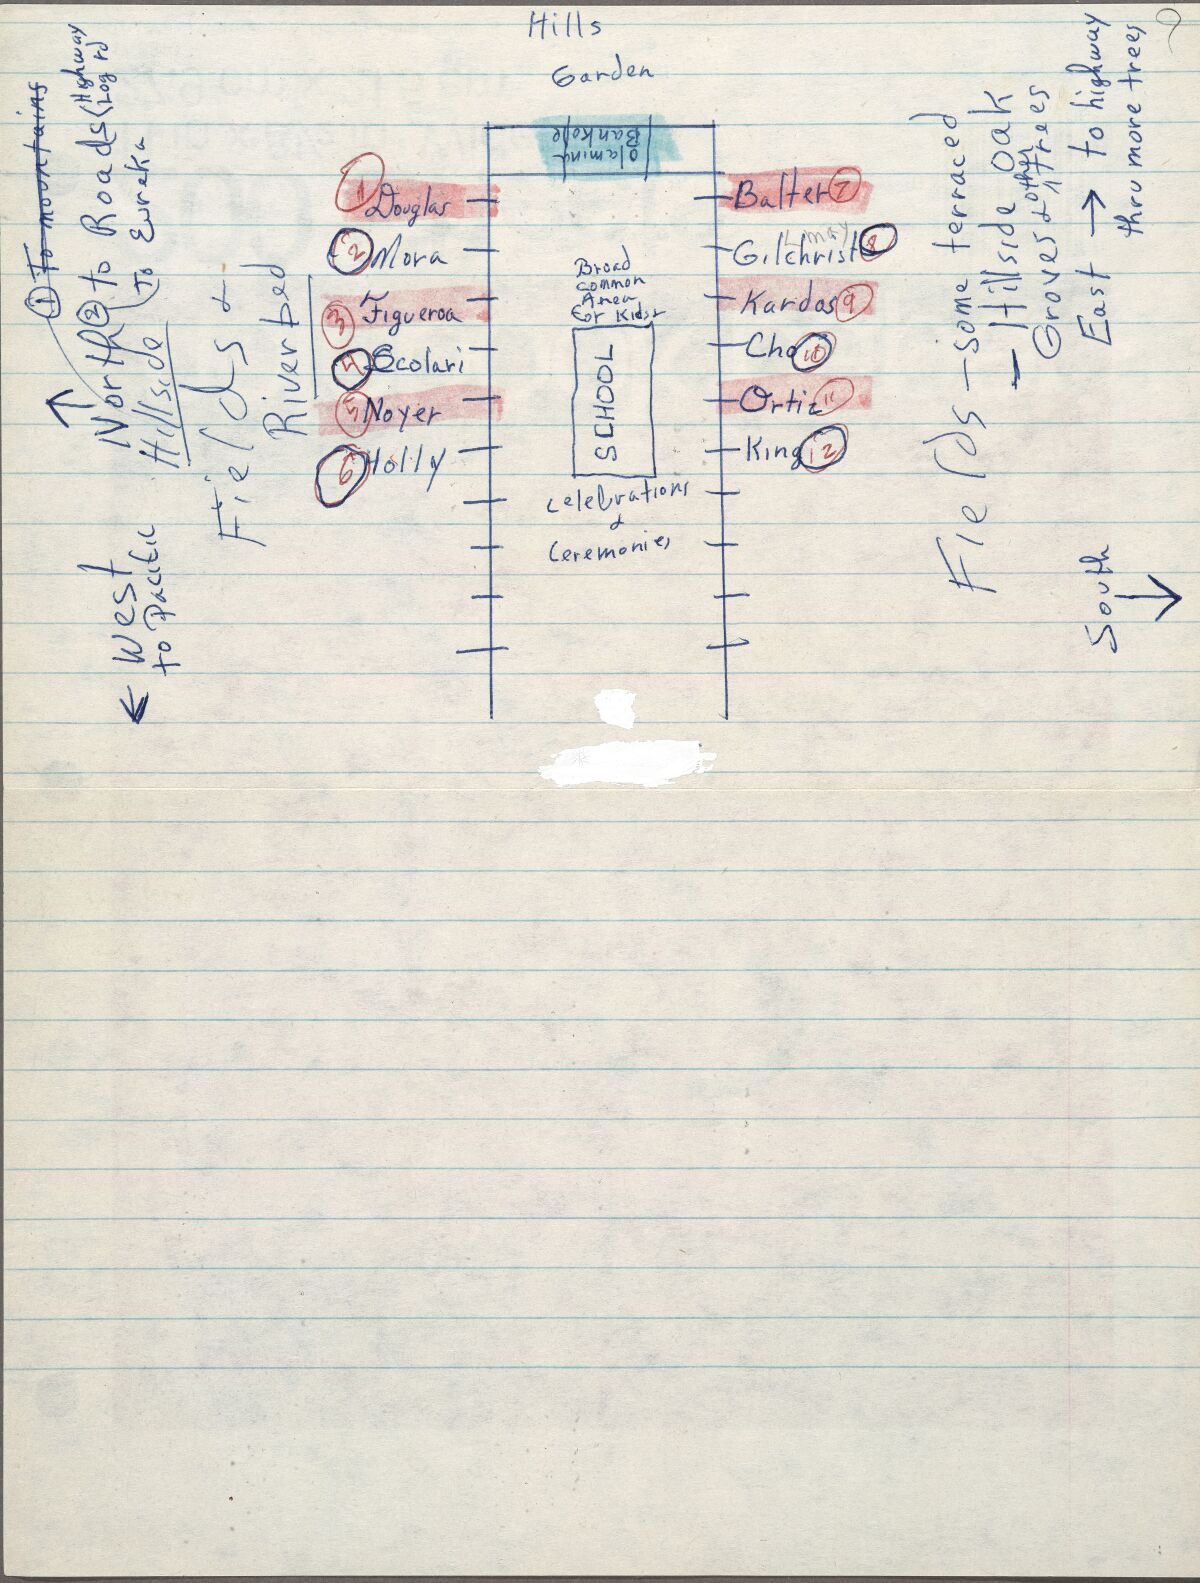 Hills
Garden
Olamina
Bankole
1 Douglas
2 Mora
3 Figueroa
4 Scolari
5 Noyer
6 Holly
Balter 7
Gilchrist 8
Kardos 9
Cho 10
Ortiz 11
King 12
Broad
common
Area
for Kids
SCHOOL
Celebrations
&
Ceremonies
1 To mountains
North 2 to Roads (Highway
Log rd
(To Eureka
Hillside
Fields &
Riverbed
← West
to Pacific
Fields - some terraced
- Hillside oak
Groves & other trees
East → to highway
thru more trees
South